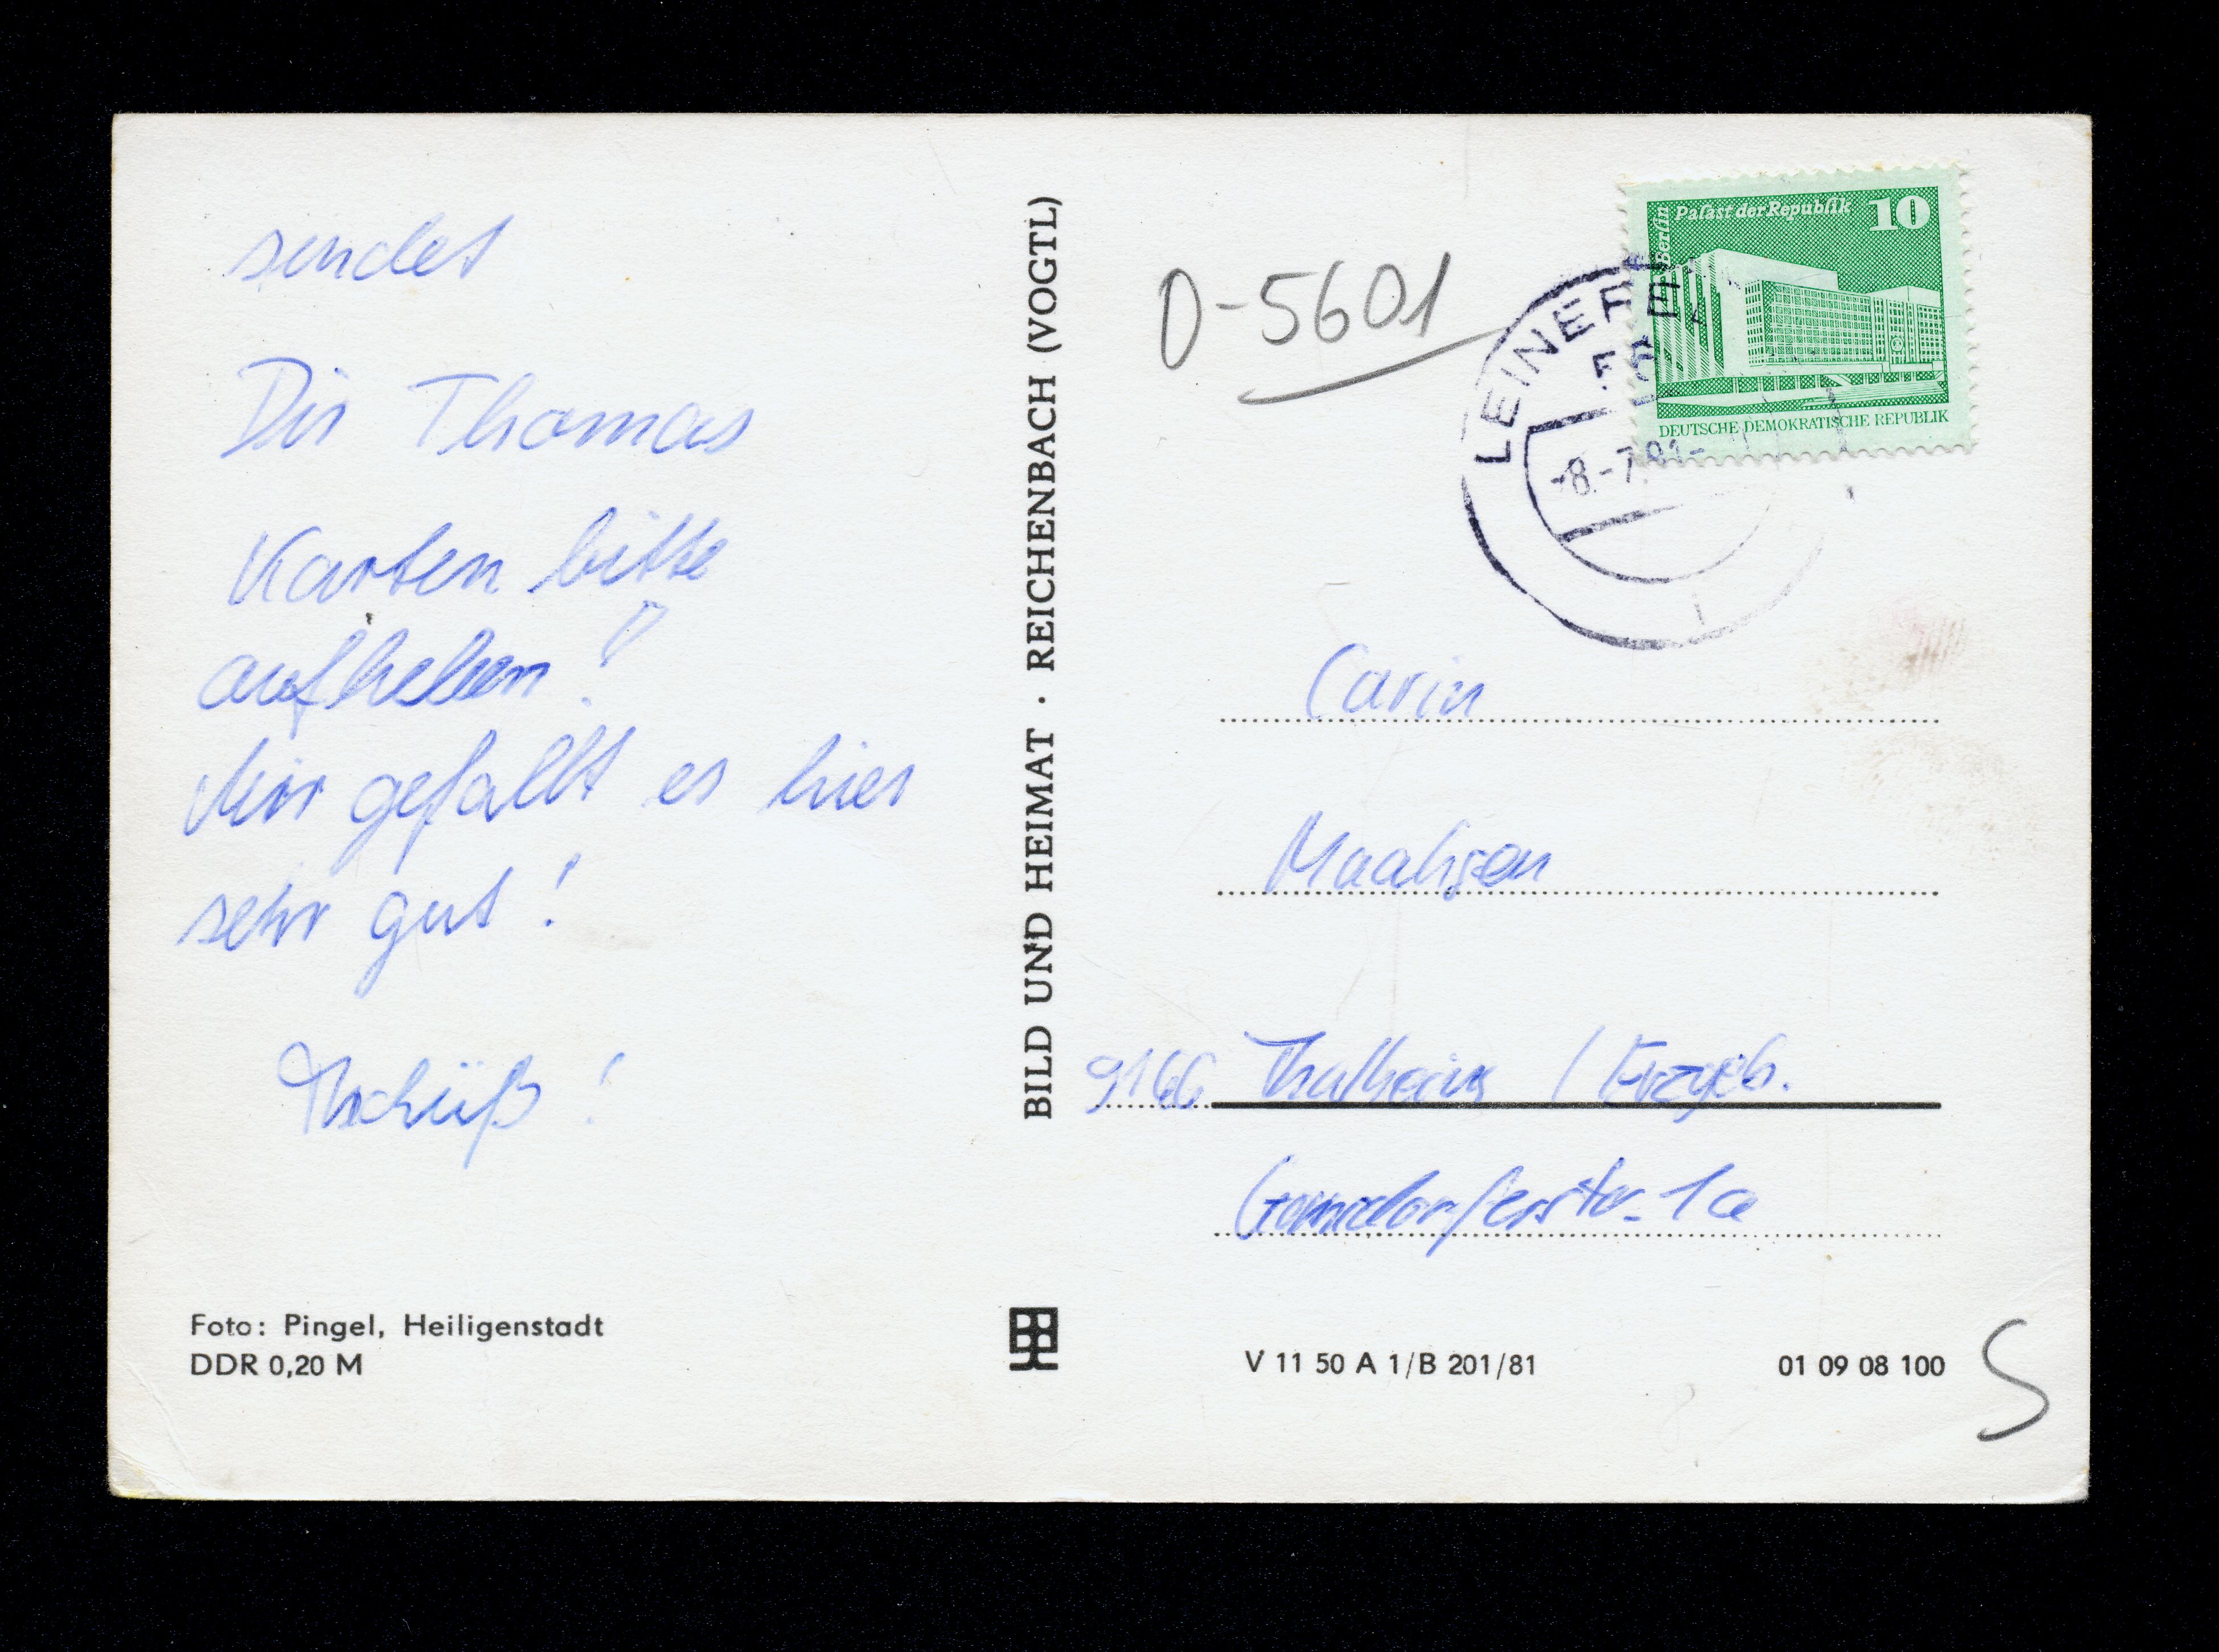 sendet
Dir Thomas
Karten bitte
aufheben!
Mir gefällt es hier
sehr gut!
Tschüß!
Foto: Pingel, Heiligenstadt
DDR 0,20 M
BILD UND HEIMAT · REICHENBACH (VOGTL)
D-5601
Berlin
Palast der Republik 10
DEUTSCHE DEMOKRATISCHE REPUBLIK
-8.-7.
Carin
9166 Thalheim / Erzgeb.
1a
V 11 50 A 1/B 201/81
01 09 08 100
S